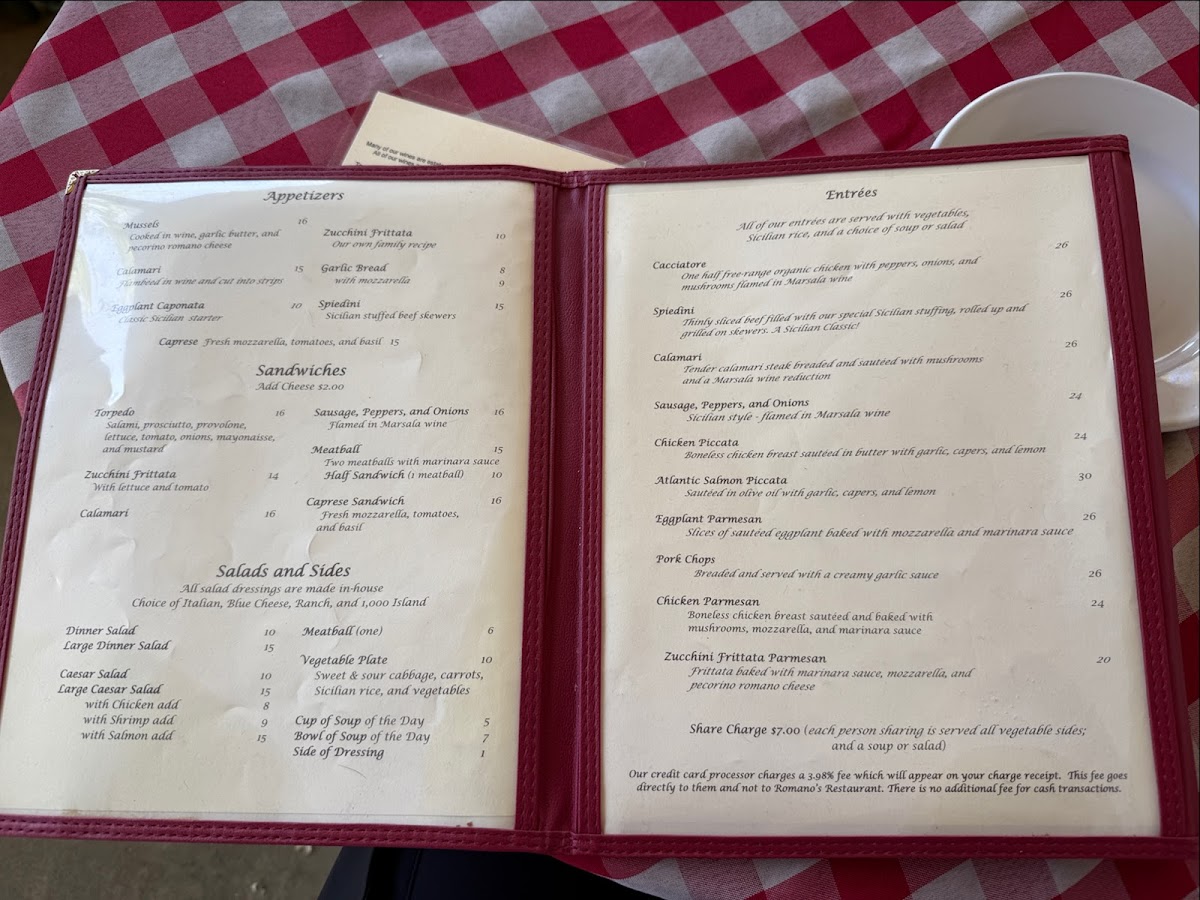 Many of our wines are
All of our wines
Appetizers
Mussels 16
Cooked in wine, garlic butter, and
pecorino romano cheese
Calamari 15
Flambeed in wine and cut into strips
Eggplant Caponata 10
Classic Sicilian starter
Zucchini Frittata 10
Our own family recipe
Garlic Bread 8
with mozzarella 9
Spiedini 15
Sicilian stuffed beef skewers
Caprese Fresh mozzarella, tomatoes, and basil 15
Sandwiches
Add Cheese $2.00
Torpedo 16
Salami, prosciutto, provolone,
lettuce, tomato, onions, mayonaisse,
and mustard
Zucchini Frittata 14
With lettuce and tomato
Calamari 16
Sausage, Peppers, and Onions 16
Flamed in Marsala wine
Meatball 15
Two meatballs with marinara sauce
Half Sandwich (1 meatball) 10
Caprese Sandwich 16
Fresh mozzarella, tomatoes,
and basil
Salads and Sides
All salad dressings are made in-house
Choice of Italian, Blue Cheese, Ranch, and 1,000 Island
Dinner Salad 10
Large Dinner Salad 15
Caesar Salad 10
Large Caesar Salad 15
with Chicken add 8
with Shrimp add 9
with Salmon add 15
Meatball (one) 6
Vegetable Plate 10
Sweet & sour cabbage, carrots,
Sicilian rice, and vegetables
Cup of Soup of the Day 5
Bowl of Soup of the Day 7
Side of Dressing 1
Entrées
All of our entrées are served with vegetables,
Sicilian rice, and a choice of soup or salad
Cacciatore 26
One half free-range organic chicken with peppers, onions, and
mushrooms flamed in Marsala wine
Spiedini 26
Thinly sliced beef filled with our special Sicilian stuffing, rolled up and
grilled on skewers. A Sicilian Classic!
Calamari 26
Tender calamari steak breaded and sautéed with mushrooms
and a Marsala wine reduction
Sausage, Peppers, and Onions 24
Sicilian style - flamed in Marsala wine
Chicken Piccata 24
Boneless chicken breast sautéed in butter with garlic, capers, and lemon
Atlantic Salmon Piccata 30
Sautéed in olive oil with garlic, capers, and lemon
Eggplant Parmesan 26
Slices of sautéed eggplant baked with mozzarella and marinara sauce
Pork Chops
Breaded and served with a creamy garlic sauce 26
Chicken Parmesan 24
Boneless chicken breast sautéed and baked with
mushrooms, mozzarella, and marinara sauce
Zucchini Frittata Parmesan 20
Frittata baked with marinara sauce, mozzarella, and
pecorino romano cheese
Share Charge $7.00 (each person sharing is served all vegetable sides;
and a soup or salad)
Our credit card processor charges a 3.98% fee which will appear on your charge receipt. This fee goes
directly to them and not to Romano's Restaurant. There is no additional fee for cash transactions.